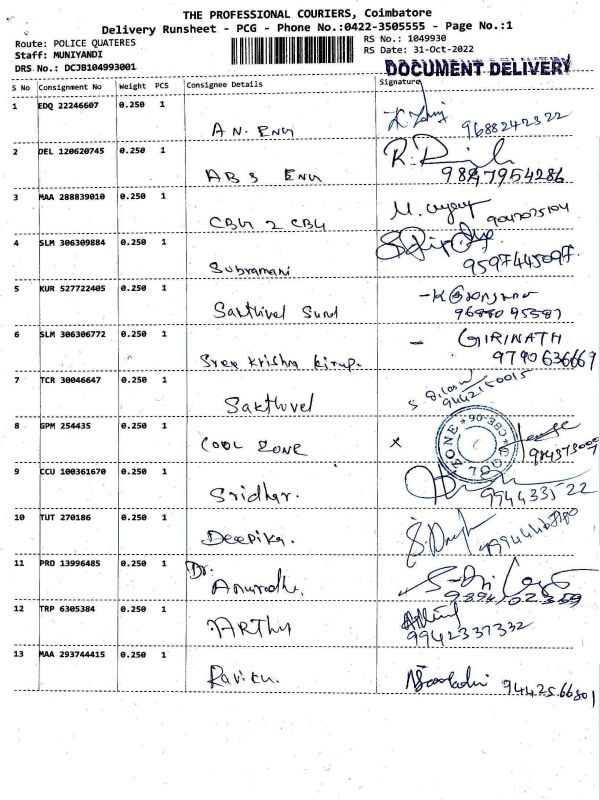 THE PROFESSIONAL COURIERS, Coimbatore
Delivery Runsheet - PCG - Phone No.:0422-3505555 - Page No.:1
Route: POLICE QUATERES
RS No.: 1049930
Staff: MUNIYANDI
RS Date: 31-Oct-2022
DRS No.: DCJB104993001
DOCUMENT DELIVERY
S No Consignment No Weight PCS Consignee Details Signature
1 EDQ 22246607 0.250 1
A N. ENG 9688242322
2 DEL 120620745 0.250 1
ABS ENG
3 MAA 288839010 0.250 1
CBU 2 CBU
4 SLM 306309884 0.250 1
Subramani 9597445097
5 KUR 527722405 0.250 1
Sakthivel Sund
6 SLM 306306772 0.250 1
GIRINATH
Sree Krishna Kirup. 9790636669
7 TCR 30046647 0.250 1
Sakthivel
8 GPM 254435 0.250 1
COOL ZONE x
9 CCU 100361670 0.250 1
Sridhar.
10 TUT 270186 0.250 1
Deepika.
11 PRO 13996485 0.250 1
Dr.
Anuradha.
12 TRP 6305384 0.250 1
ARTHY 9942337332
13 MAA 293744415 0.250 1
Raviku. 9442566801